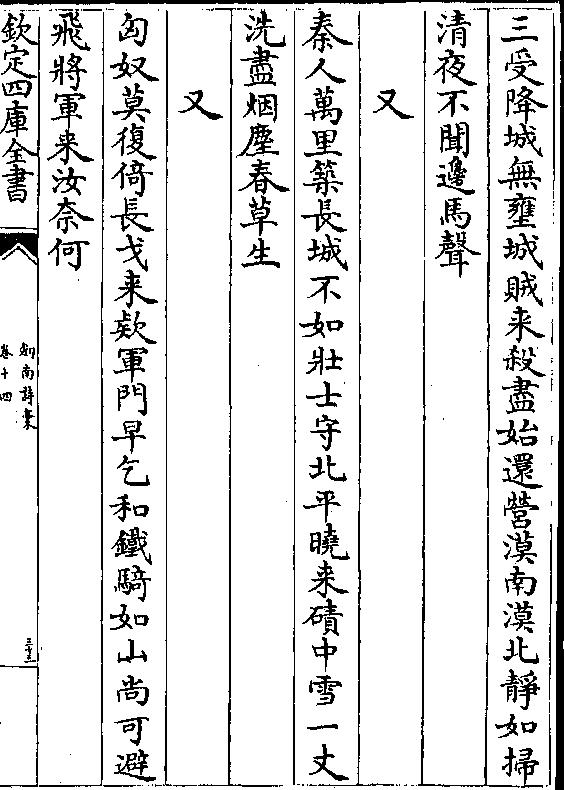 三受降城無壅城賊来殺盡始還營漠南漠北靜如掃
清夜不聞邊馬聲
又
秦人萬里築長城不如壯士守北平曉来磧中雪一丈
洗盡烟塵春草生
又
匈奴莫復倚長戈来欵軍門早乞和鐵騎如山尚可避
飛將軍来汝奈何
欽定四庫全書
劍南詩稾
卷十四
三十三